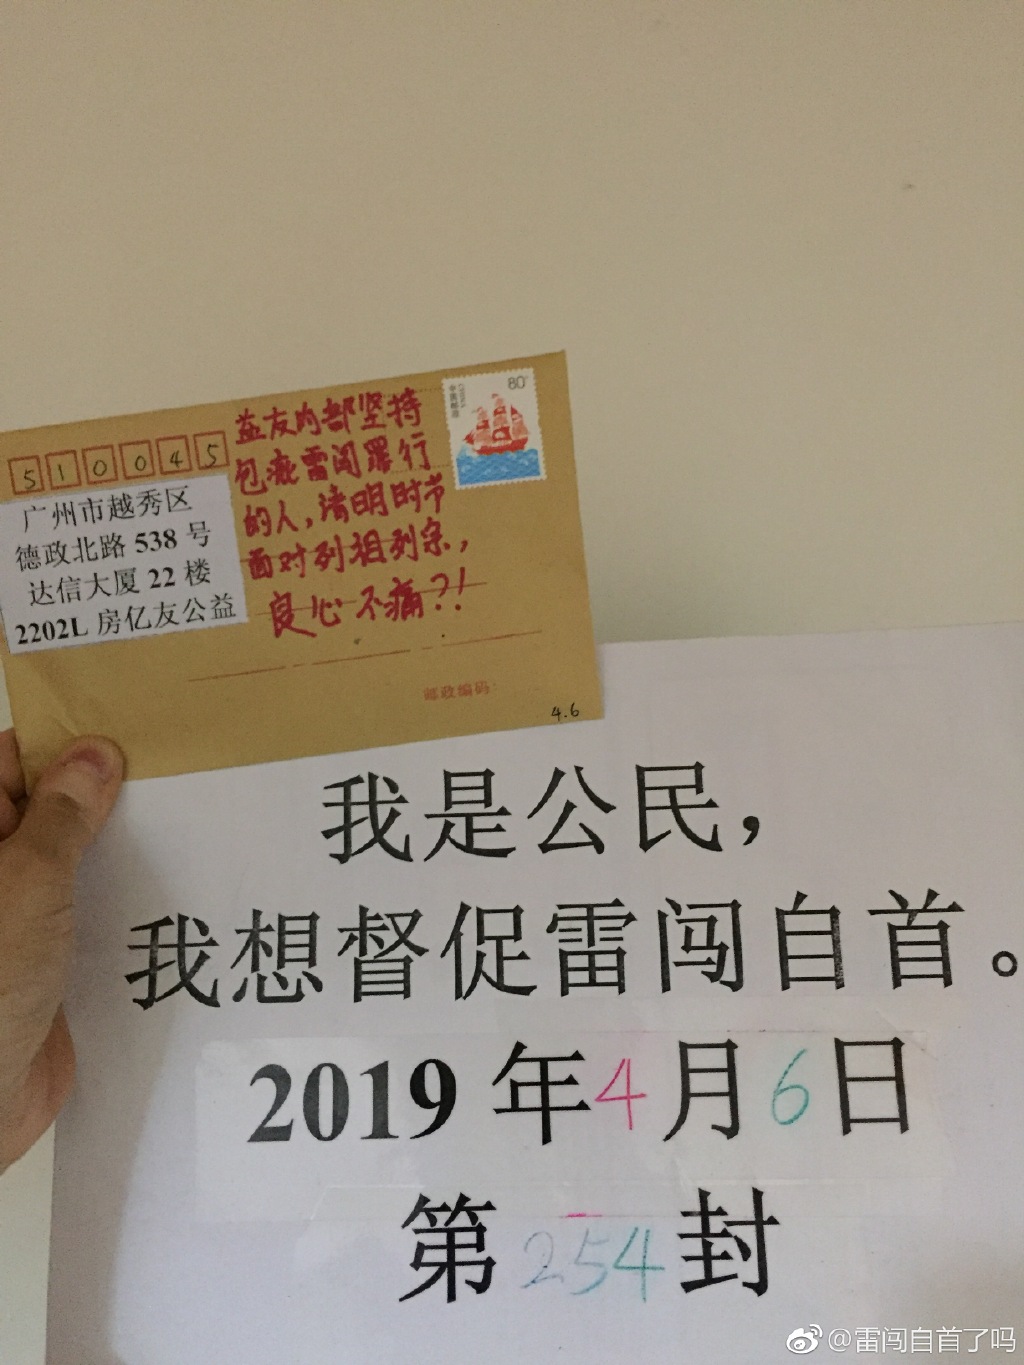 510045
广州市越秀区
德政北路 538 号
达信大厦 22 楼
2202L 房亿友公益
益友内部坚持
包庇雷闯罪行
的人，清明时节
面对列祖列宗，
良心不痛?!
80
中国邮政
CHINA
邮政编码
4.6
我是公民，
我想督促雷闯自首。
2019 年4月6日
第254封
@雷闯自首了吗